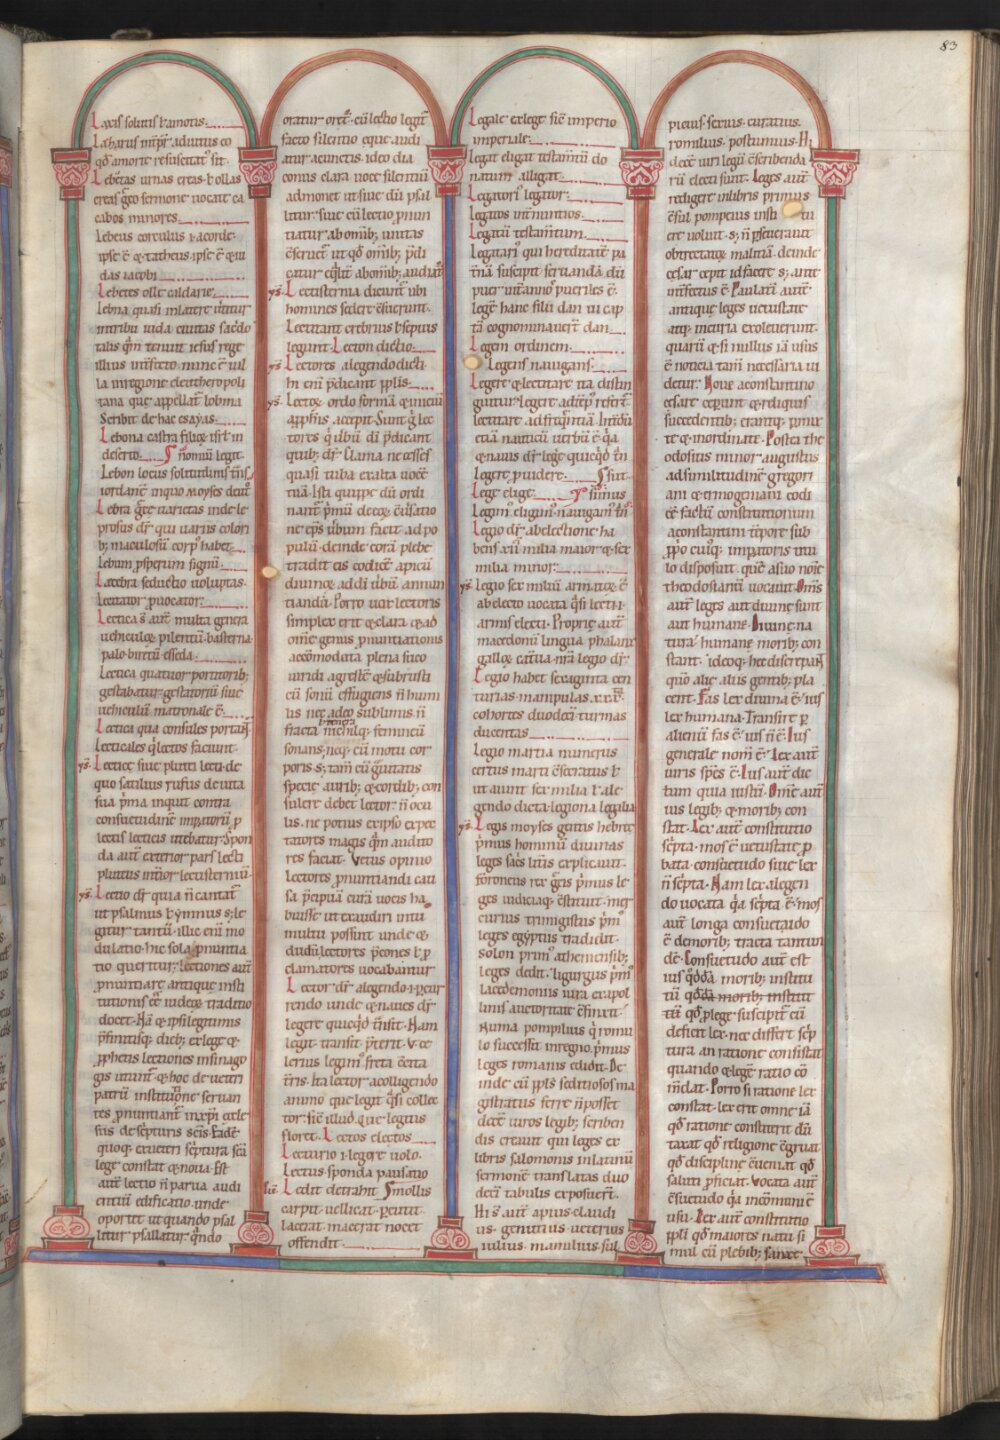 83
Laxis solutis ł amotis.
Lazarus int̄pr̄ adiutus eo
qđ a morte resuscitat᷒ sit.
Lebetas urnas
etas greco sermone uocat ea
cabos minores
Lebeus corculus ł a corde.
ipse ē & tatheus. ipse ē & iu
das iacobi
Lebetes olle caldarie
Lebna quasi in latere
in tribu iuda ciuitas sacerdo
talis qm̄ tenuit iesus rege
illius int̄fecto. nunc ē uil
la in regione eleutheropoli
tana que appellat᷒ lobnia
Scribit de hac esayas.
Lebona castra filioꝝ isrl in
deserto
Lebon locus solitudinis trans
iordanē in quo moyses
Lebra
prosus dr̄ qui uariis colori
bꝫ maculosū corp᷒ habet.
Lebum psperum signū.
Lacebra seductio uoluptas.
Lectiator puocator.
Lectica s̄ aut̄ multa genera
uehiculoꝝ pilentū. basterna
palo. biretū esseda.
Lectica quatuor portitoribꝫ
gestabatur. gestatoriū siue
uehiculū matronale ē.
Lectica qua consules portant᷒
Lecticales q̇ lectos faciunt.
ys̄. Lectice siue plutei lecti. de
quo satilius rufus de uita
sua p̄ma inquit contra
consuetudinē imp̄atorū
lectis lecticis utebatur. Spon
da aut̄ exterior pars lecti
pluteus int̄ior lecti
ys̄. Lectio dr̄ quia n̄ cantat᷒
ut psalmus ł ymnus s; le
gitur tantū. illic eni mo
dulatio. hic sola pnuntia
tio queritur. lectiones aut̄
pnuntiare antique insti
tutionis ee iudeoꝝ traditio
docet. Nā & ipsi legitimis
p̄finitisqꝫ diebꝫ ex lege &
pphetis lectiones in sinago
gis utunt᷒ & hoc de ueteri
patrū institutione seruan
tes. pnuntiant᷒ in xp̄i eccle
siis de sc̄pturis scīs. Eadē
quoqꝫ sc̄ptura
lege constat & noua. Est
aut̄ lectio n̄ parua audi
entiū edificatio. unde
oportet ut quando psal
litur psallatur. q̄ndo
oratur oret᷒. cū lectio legit᷒
facto silentio eque audi
atur a cunctis. ideo dia
conus clara uoce silentiū
admonet ut siue dū psal
litur siue cū lectio pnun
tiatur ab omībꝫ unitas
c̄seruet᷒ ut qđ omībꝫ p̄di
catur eq̄lit̄ ab omībꝫ audiat᷒
ys̄. Lectisternia dicunt᷒ ubi
homines sedere c̄suerunt.
Lectitant crebrius ł sepius
legunt. Lecton dictio
ys̄. Lectores a legendo dicti.
hi eni p̄dicant pplīs.
ys̄. Lectoꝝ ordo formā & initiū
a pphīs accepit. Sunt g̊ lec
tores q̇ ubū dī p̄dicant
quibꝫ dr̄. Clama ne cesses
quasi tuba exalta uocē
tuā. Isti quippe dū ordi
nant᷒ p̄mū
ne eps̄ ubum facit ad po
pulū. deinde corā plebe
tradit eis codicē apicū
diuinoꝝ ad dī ubū annun
tiandū. Porro uox lectoris
simplex erit & clara & ad
omē genus pnuntiationis
accomodata. plena suco
uiridi. agreste & subrusti
cū sonū effugiens n̄ humi
lis nec adeo sublimis n̄
fracta neqꝫ femineū
sonans. neqꝫ cū motu cor
poris s; tam cū grauitatis
specie. auribꝫ & cordibꝫ con
sulere debet lector n̄ ocu
lis. ne potius ex ipso spec
tatores magis qm̄ audito
res faciat. Vetus opinio
lectores pnuntiandi cau
sa p̄cipuā curā uocis ha
buisse ut exaudiri in tu
multu possint unde &
dudū lectores p̄cones ł p
clamatores uocabantur
Lector dr̄ a legendo. i. pcur
rendo unde & naues dr̄
legere quicqđ t̄nsit. Nam
legit transit p̄terit. V ce
lerius legimꝰ freta
t̄ris. Ita lector a colligendo
animo que legit q̄si collec
tor. sic̄ illud. Que legitis
flores. Lectos electos
Lecturio. i. legere uolo.
Lectus. sponda pausatio
Ledit detrahit. Smollis
carpit. uellicat. percutit.
lacerat. macerat. nocet
offendit.
Legale ex lege sic̄ imperio
imperiale.
Legat eligat testamtū do
natum alligat.
Legitori legitor.
Legatos int̄nuntios.
Legatū testamtum.
Legitari qui hereditatē pa
t̄nā suscipit seruandā. dū
puer int̄ annoꝰ pueriles ē.
Legē hanc filii dan ui cap
tā cognominauert᷒ dan.
Legem ordinem.
Legens nauigans.
Legere & lectitare ita distin
guitur. legere ad tēp᷒ refert᷒.
lectitare ad freqūntiā. Int̄dū
etiā nauticū uerbū ē. q̄a
& naues dr̄ lege quicqđ t̄n
Legere puidere. Ssit.
Lege elige. Ssimus
Legimꝰ eligimꝰ. nauigamꝰ. t̄n
Legio dr̄ ab electione ha
bens xii milia maior & sex
milia minor.
ys̄. Legio sex miliū armatoꝝ ē
ab electo uocata q̄si lecti. i.
armis electi. Proprie aut̄
macedonū lingua phalanx
galloꝝ cat̄ua. nr̄a legio dr̄.
Legio habet sexaginta cen
turias. manipulas. xxx.
cohortes duodeci. turmas
ducentas
Legio martia numerus
certus marti c̄secratus ł
ut aiunt sex milia ł a le
gendo dicta. legiona legalia
ys̄. Legis moyses gentis hebree
p̄mus hominū diuinas
leges sac̄s litt̄is explicauit.
foroneus rex grecis p̄mus le
ges iudiciaqꝫ c̄stituit. mer
curius trimigistus p̄mꝰ
leges egyptiis tradidit.
Solon primꝰ atheniensibꝫ
leges dedit. ligurgus p̄mꝰ
lacedemoniis iura ex apol
linis auctoritate c̄finxit.
Numa pompilius q̇ romu
lo successit in regno. p̄mus
leges romanis edidit. De
inde cū ppls̄ seditiosos ma
gistratus ferre n̄ posset
decē uiros legibꝫ scriben
dis creauit qui leges ex
libris salomonis in latinū
sermonē translatas duo
decī tabulis exposuert᷒.
Hi s̄ aut̄ apius. claudi
us. genutius. ueterius.
iulius. manulius. sul
picius. seruus. curatius.
romilius. postumius. Hi
decē uiri legū c̄scribenda
rū electi sunt. Leges aut̄
redigere in libris primus
c̄sul pompeius insti tu
ere uoluit. s; n̄ pseuerauit
obtrectatoꝝ malitiā. deinde
cesar cepit id facere s; ante
int̄fectus ē. Paulatī aut̄
antique leges uetustate
atqꝫ incuria exoleuerunt.
quarū & si nullus iā usus
ē noticia tam̄ necessaria ui
detur. Noue a constantino
cesare ceperunt & reliquis
succedentibꝫ. erantqꝫ p̄mix
te & inordinate. Postea the
odosius minor augustus
ad similitudinē gregori
ani & ermogeniani codi
cē factū constitutionum
a constantini t̄pore sub
pp̄o cuiꝰqꝫ imp̄atoris titu
lo disposuit. quē a suo noīe
theodosianū uocauit. Oms̄
aut̄ leges aut diuine sunt
aut humane. Diuine na
tura. humane moribꝫ con
stant. ideoqꝫ hee discrepant᷒
qnō alie aliis gentibꝫ pla
cent. Fas lex diuina ē. ius
lex humana. Transire p
alienū fas ē. ius n̄ ē. Ius
generale nom̄ ē. Lex aut̄
iuris sp̄es ē. Ius aut̄ dic
tum quia iustū. Om̄e aut̄
ius legibꝫ & moribꝫ con
stat. Lex aut̄ constitutio
sc̄pta. mos ē uetustate p
bata consuetudo siue lex
n̄ sc̄pta. Nam lex a legen
do uocata q̄a sc̄pta ē. mos
aut̄ longa consuetudo
ē de moribꝫ tracta tantun
dē. Consuetudo aut̄ est
ius qđdā moribꝫ institu
tū qđdā moribꝫ institut
tū qđ p lege suscipit᷒ cū
deficit lex. nec differt sc̄p
tura an ratione consistat
quando & legē ratio cō
m̄dat. Porro si ratione lex
constat. lex erit omne iā
qđ ratione constiterit dū
taxat qđ religione c̄gruat
qđ discipline c̄ueniat qđ
saluti pficiat. Vocata aut̄
c̄suetudo q̄a in cōmuni ē
usu. Lex aut̄ constitutio
ppli qđ maiores natu si
mul cū plebibꝫ sanxer᷒